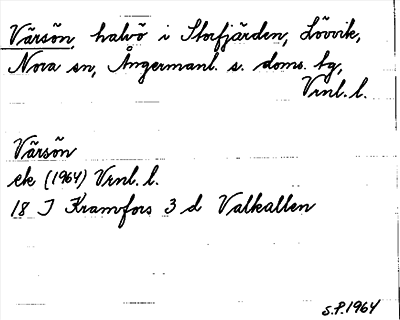 Värsön, halvö i Storfjärden, Lövvik,
Nora sn, Ångermanl. s. doms. tg,
Vrnl. l.
Värsön
ek (1964) Vrnl. l.
18 I Kramfors 3 d Valkallen
S.P. 1964